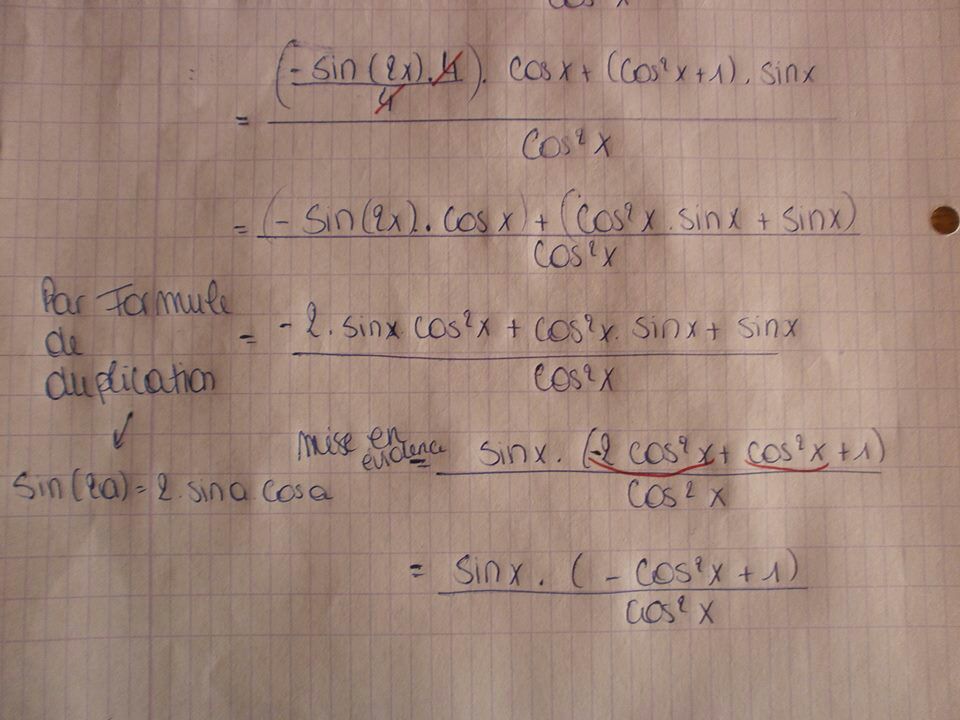 cos² x
= (-sin (2x) . 4 / 4) . cos x + (cos² x + 1) . sin x
cos² x
= (- sin(2x) . cos x) + (cos² x . sin x + sin x)
cos² x
Par Formule de duplication
= -2 . sin x cos² x + cos² x . sin x + sin x
cos² x
↓
sin(2a) = 2 . sin a cos a
mise en evidence = sin x . (-2 cos² x + cos² x + 1)
cos² x
= sin x . ( - cos² x + 1)
cos² x